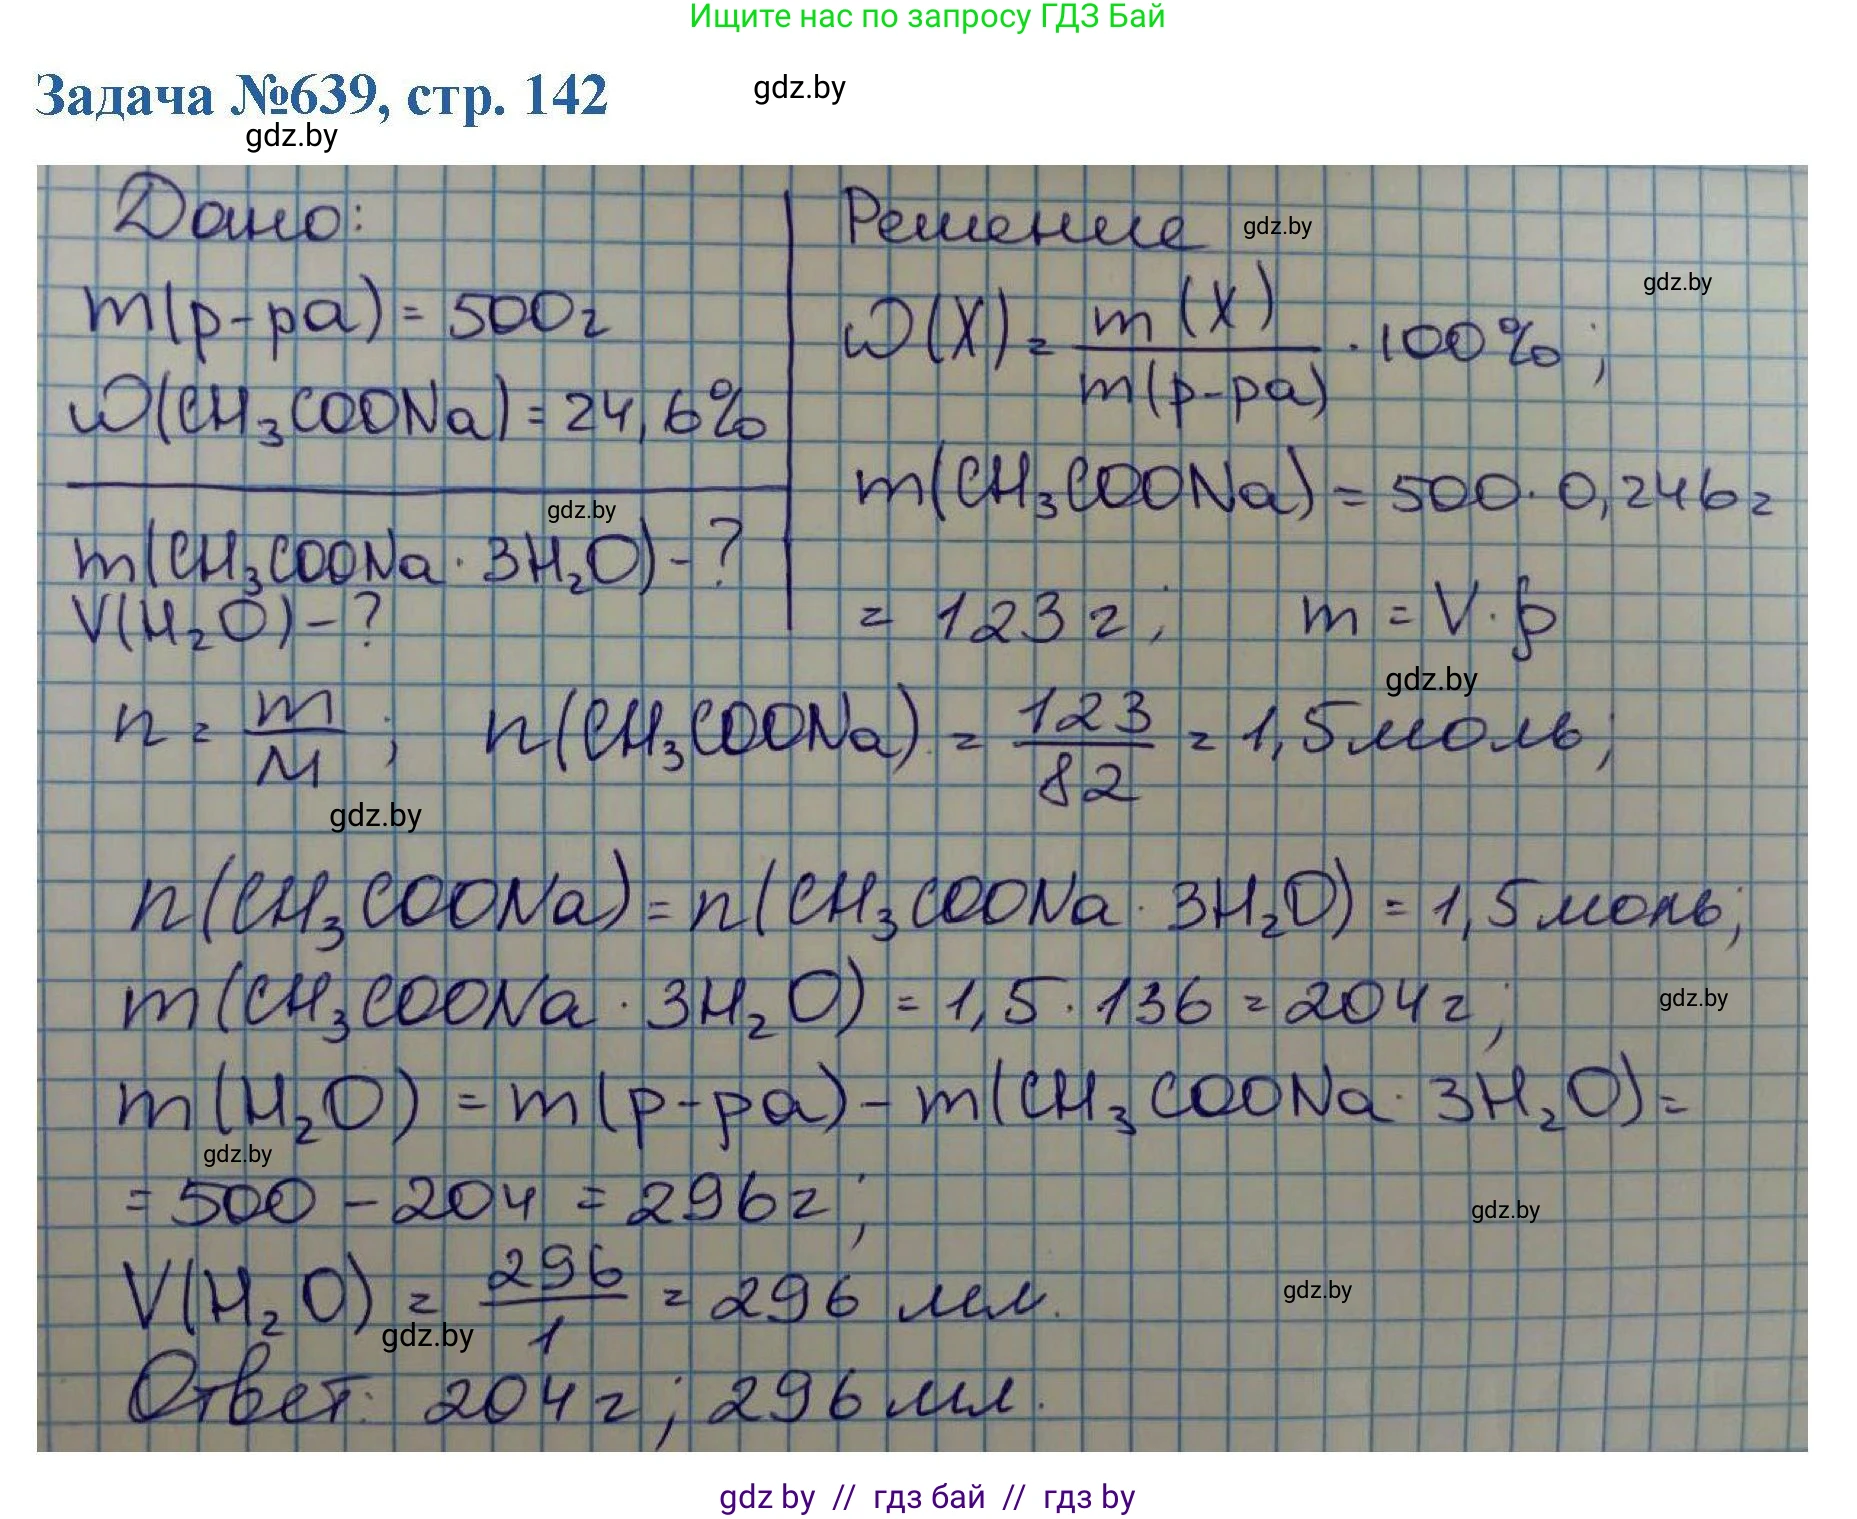 Ищите нас по запросу ГДЗ Бай
Задача №639, стр. 142
gdz.by
gdz.by
Дано:
m(р-ра) = 500г
ω(CH₃COONa) = 24,6%
gdz.by
m(CH₃COONa · 3H₂O) - ?
V(H₂O) - ?
Решение
gdz.by
gdz.by
ω(X) = m(X) / m(р-ра) · 100%;
m(CH₃COONa) = 500 · 0,246 г
= 123 г; m = V · ρ
gdz.by
n = m / M; n(CH₃COONa) = 123 / 82 = 1,5 моль;
gdz.by
n(CH₃COONa) = n(CH₃COONa · 3H₂O) = 1,5 моль;
m(CH₃COONa · 3H₂O) = 1,5 · 136 = 204 г;
gdz.by
m(H₂O) = m(р-ра) - m(CH₃COONa · 3H₂O) =
gdz.by
= 500 - 204 = 296 г;
gdz.by
V(H₂O) = 296 / 1 = 296 мл.
gdz.by
gdz.by
Ответ: 204 г; 296 мл.
gdz by // гдз бай // гдз by